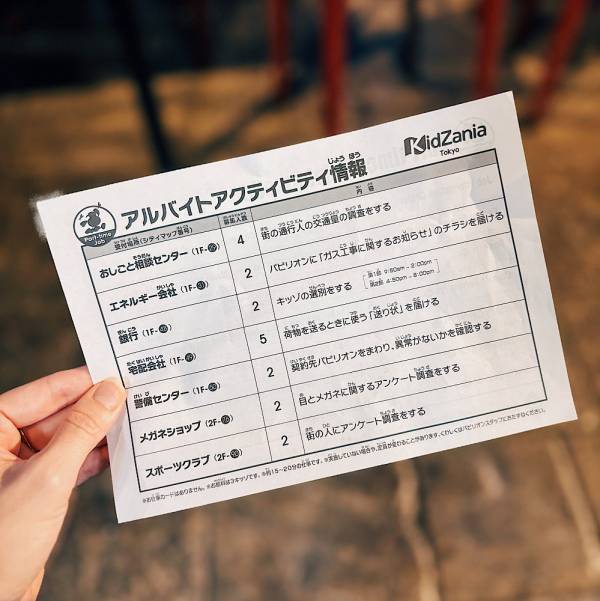 KidZania
Tokyo
Part-time
Job
アルバイトアクティビティ情報
じょう ほう
受付場所(シティマップ番号) 募集人数 内 容
おしごと相談センター (1F- 4 街の通行人の交通量の調査をする
エネルギー会社 (1F- 2 パビリオンに「ガス工事に関するお知らせ」のチラシを届ける
銀行 (1F- 2 キッゾの選別をする 第1部 9:60am - 2:00pm
第2部 4:50pm - 8:00pm
宅配会社 (1F- 5 荷物を送るときに使う「送り状」を届ける
警備センター (1F- 2 契約先パビリオンをまわり、異常がないかを確認する
メガネショップ (2F- 2 目とメガネに関するアンケート調査をする
スポーツクラブ (2F- 2 街の人にアンケート調査をする
※お仕事カードはありません。※お給料は3キッゾです。※約15~20分のお仕事です。※実施していない場合や、定員が変わることがあります。くわしくはパビリオンスタッフにおたずねください。